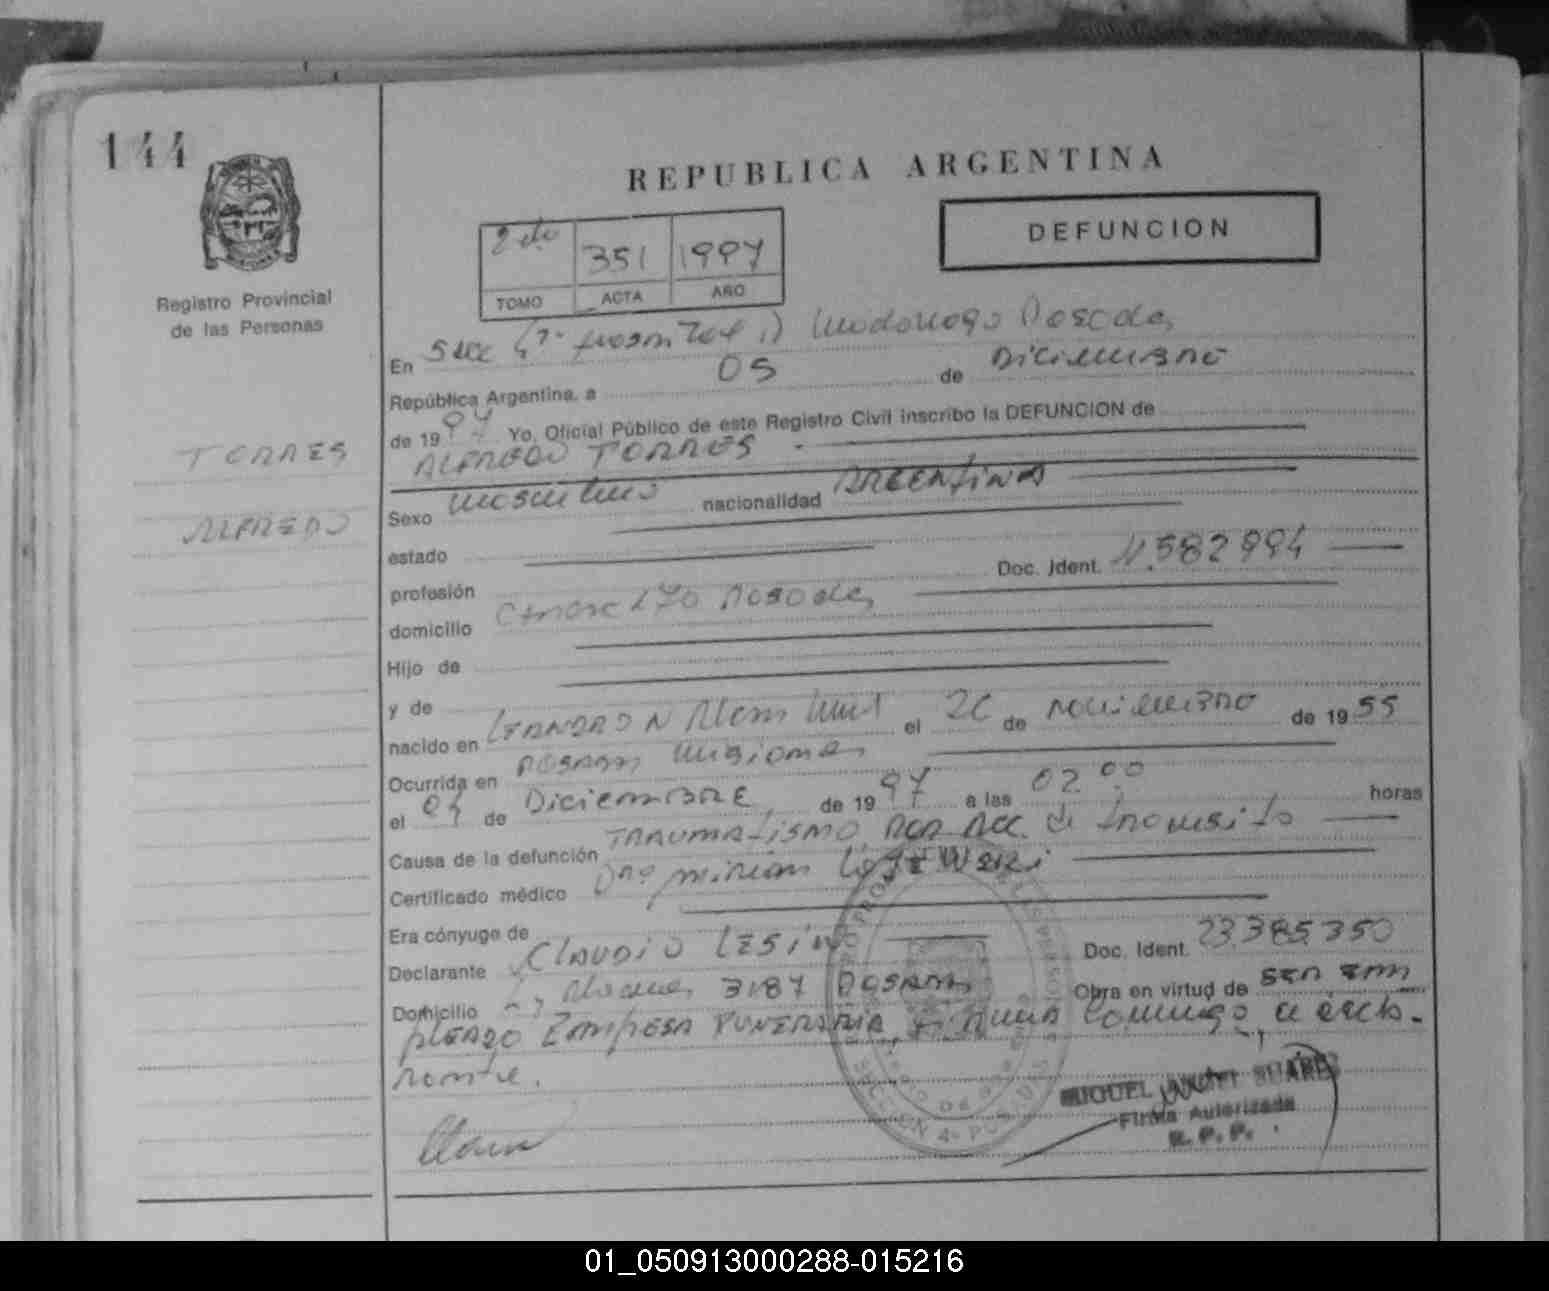 144
REPUBLICA ARGENTINA
DEFUNCION
351 1997
TOMO ACTA AÑO
Registro Provincial
de las Personas
En Posadas
República Argentina, a 05 de Diciembre
de 1997 Yo, Oficial Público de este Registro Civil inscribo la DEFUNCION de
TORRES
ALFREDO TORRES
ALFREDO
Sexo masculino nacionalidad ARGENTINA
estado
profesión Doc. Ident. 11.582994
domicilio Posadas
Hijo de
y de
nacido en LEANDRO N Alem el 26 de noviembre de 1955
Ocurrida en Posadas Misiones
el 04 de Diciembre de 1997 a las 02 00 horas
Causa de la defunción TRAUMATISMO POR ACC. de transito
Certificado médico Dra Miriam
Era cónyuge de
Declarante CLAUDIO LESIW Doc. Ident. 23.385.350
Domicilio 3187 Posadas Obra en virtud de ser em
pleado Empresa Funeraria, firma conmigo el decla-
rante.
MIGUEL SUAREZ
Firma Autorizada
R. P. P.
01_050913000288-015216